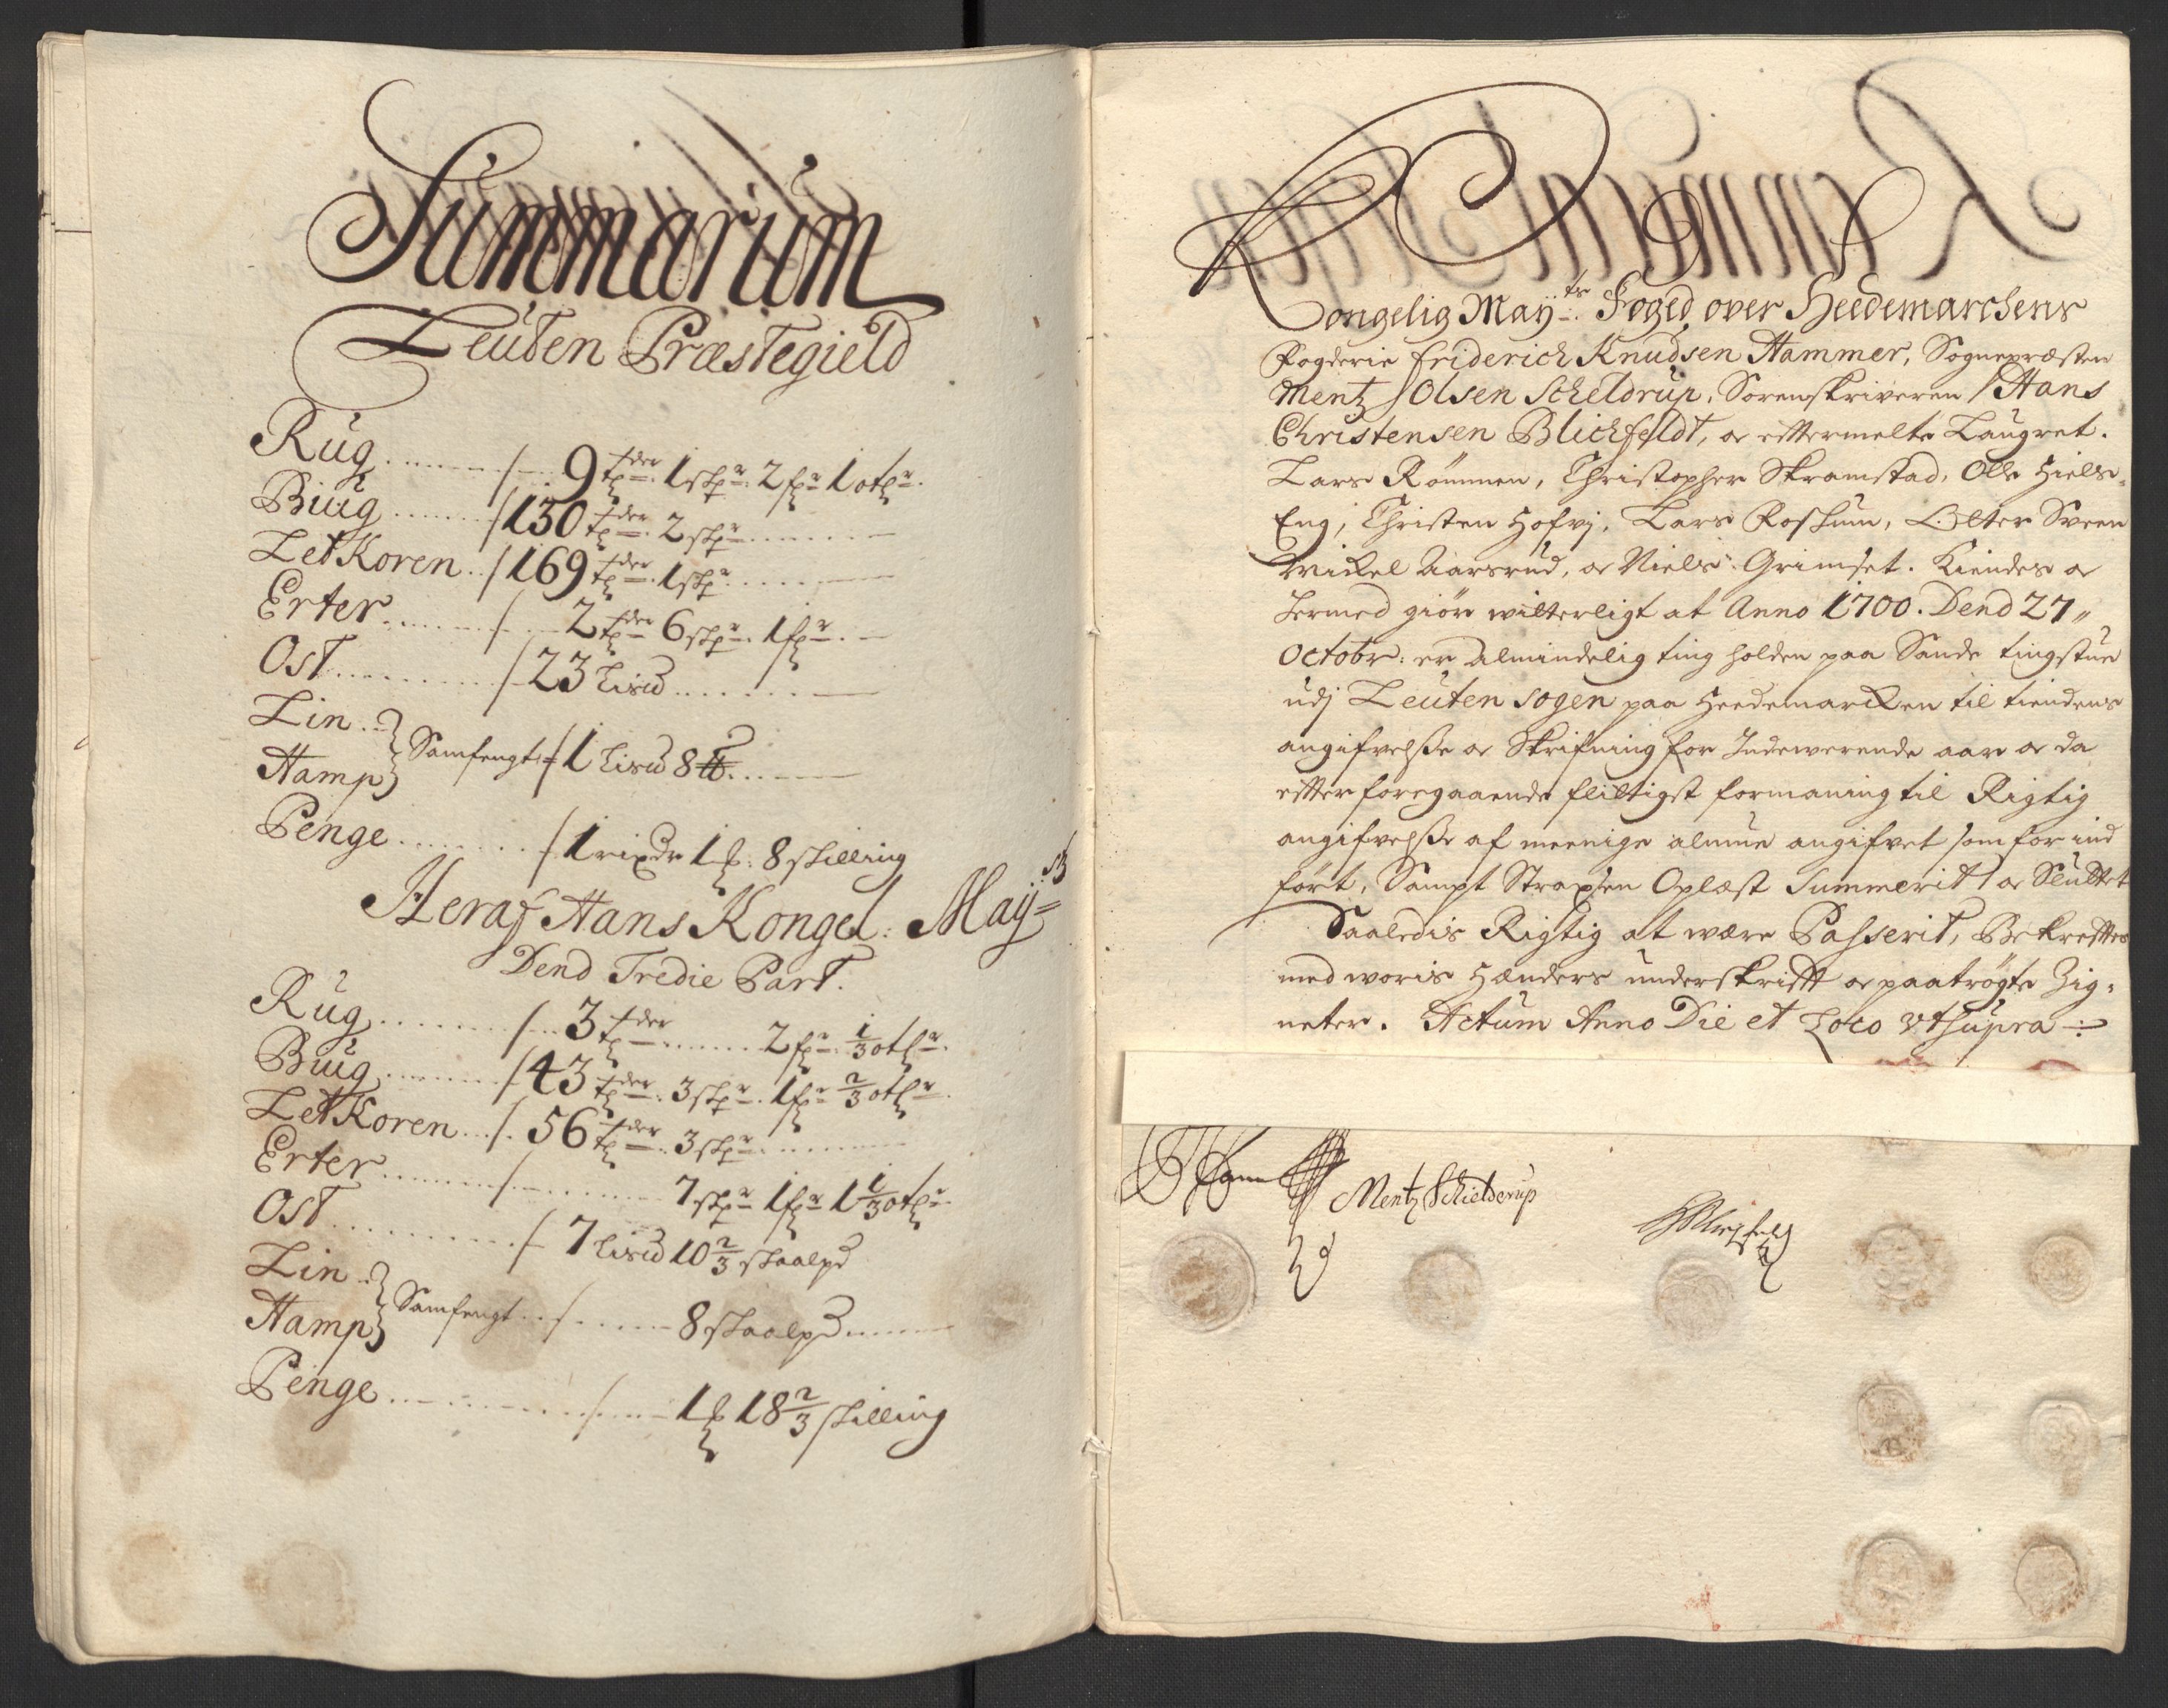 Summarum
Leuten Præstegield
Rug ........ / 9 tdr 1 skpr 2 fr 1 otr.
Biug ...... / 130 tdr 2 skpr ......
Let Koren .. / 169 tdr 1 skpr ......
Erter ...... / 2 tdr 6 skpr 1 fr.
Ost ........ / 23 Lisu ......
Lin
Hamp } Samfengt / 1 Lisu 8 ℔ ......
Penge ...... / 1 rixdr 1 ₰: 8 skilling
Heraf Hans Kongel: May ts
Dend Tredie Part.
Rug ....... / 3 tdr ...... 2 fr 1/3 otr.
Biug ...... / 43 tdr 3 skpr 1 fr 2/3 otr.
Let Koren ... / 56 tdr 3 skpr ......
Erter ...... / ...... 7 skpr 1 fr 1 1/3 otr
Ost ........ / 7 Lisu 10 2/3 skaalpd
Lin
Hamp } Samfengt .. / ..... 8 skaalpd ......
Penge ........ / .... 1 ₰ 18 2/3 skilling
Kongelig Mayts. Foged over Heedemarchens
Fogderie Friderich Knudsen Hammer, Sognepræsten
Mentz Olsen Scheldrup, Sorenskriveren Hans
Christensen Blichfeldt, oc effternelte Laugret.
Lars Rømmen, Christopher Skramstad, Olle Hiels-
Eng, Christen Hofvj, Lars Roshum, Wolter Sveen
Mickel Aarsrud, oc Niels Grimset. Kiendes oc
hermed giøre witterligt at Anno 1700. Dend 27„
Octobr: er Almindelig ting holden paa Sande tingstue
udj Leuten sogen paa Heedemarcken til tiendens
angifvelsse oc Skrifning for Indewerende aar oc da
effter foregaaende flittigst formaning til Rigtig
angifvelsse af meenige almue angifvet som for ind
ført, Sampt Straxsen Oplæst Summerit oc Sluttet
Saaledis Rigtig at være Passerit, Bekreffter
med woris Hænders underskrifft oc paatrøgte Zig-
neter. Actum Anno Die et Loco ut supra ÷
Mentz Schielderup
HBlichfeldt